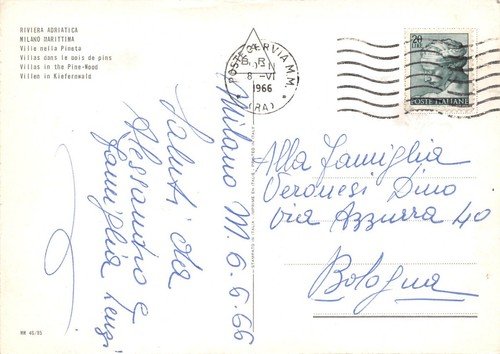 RIVIERA ADRIATICA
MILANO MARITTIMA
Ville nella Pineta
Villas dans le bois de pins
Villas in the Pine-Wood
Villen in Kiefernwald
POSTE CERVIA M.M.
8 -VI
1966
(RA)
20
LIRE
POSTE ITALIANE
Milano M. 6-6-66
Saluti da
Alessandro e
famiglia
Alla famiglia
Veronesi Dino
Via Azzurra 40
Bologna